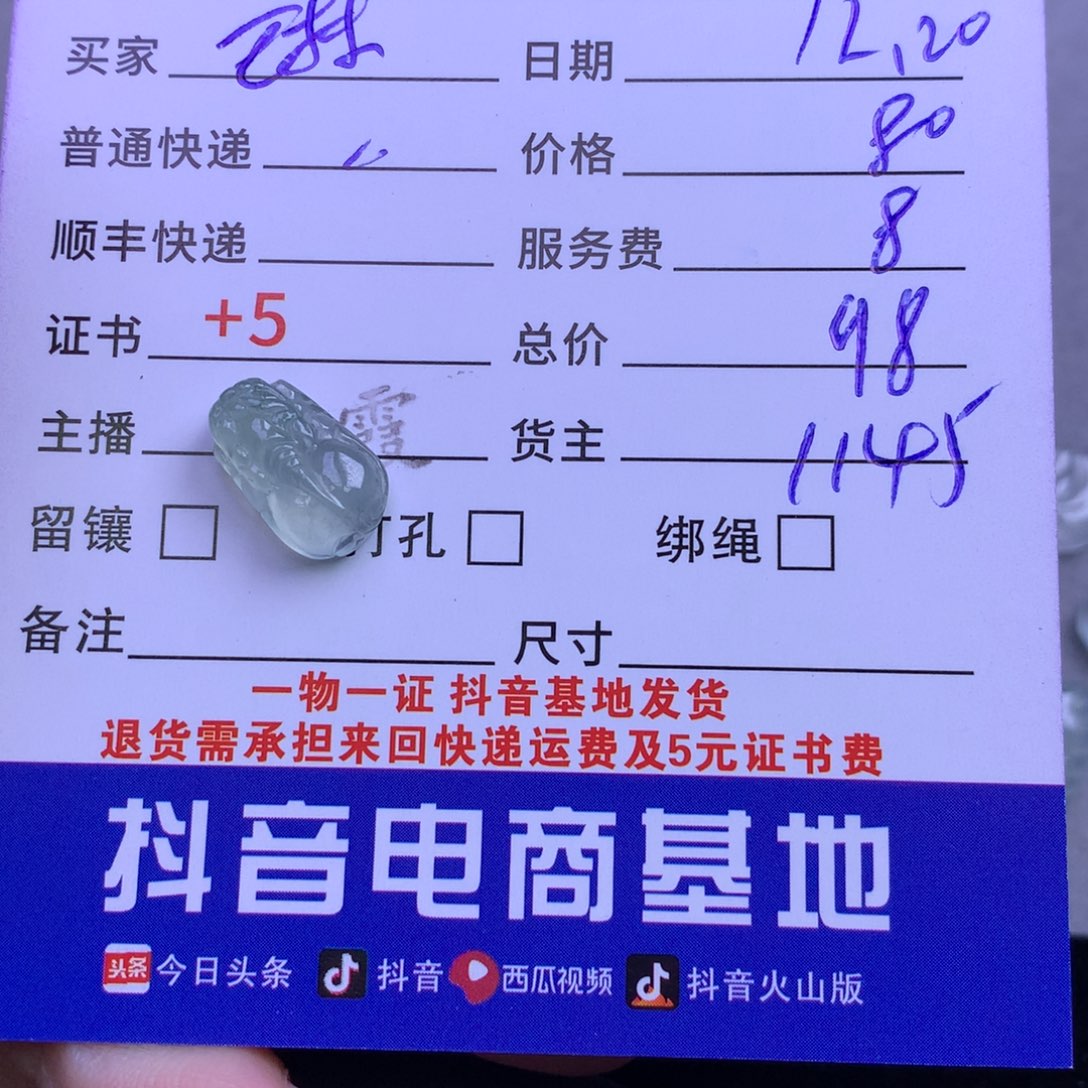 买家 琳 日期 12.20
普通快递 价格 80
顺丰快递 服务费 8
证书 +5 总价 98
主播 霞 货主 1145
留镶 打孔 绑绳
备注 尺寸
一物一证 抖音基地发货
退货需承担来回快递运费及5元证书费
抖音电商基地
头条 今日头条 抖音 西瓜视频 抖音火山版